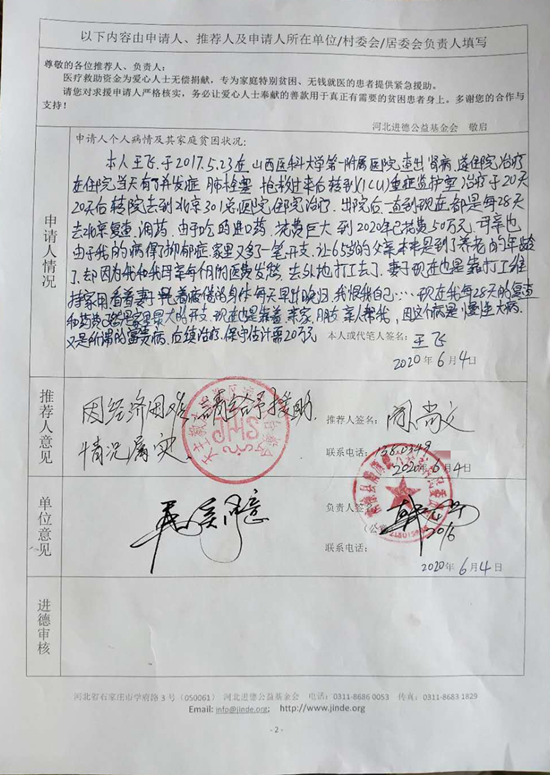 以下内容由申请人、推荐人及申请人所在单位/村委会/居委会负责人填写
尊敬的各位推荐人、负责人：
医疗救助资金为爱心人士无偿捐献，专为家庭特别贫困、无钱就医的患者提供紧急援助。
请您对求援申请人严格核实，务必让爱心人士奉献的善款用于真正有需要的贫困患者身上。多谢您的合作与
支持！
河北进德公益基金会 敬启
申请人情况
申请人个人病情及其家庭贫困状况：
本人王飞于2017.5.23在山西医科大学第一附属医院，查出肾病，遂住院治疗
在住院当天有了并发症 肺栓塞 抢救过来后转到(ICU)重症监护室 治疗于20天
20天后转院去到北京301总医院住院治疗. 出院后一直到现在都是每28天
去北京复查，润药. 由于吃的进口药 花费巨大到2020年已花费50万元. 母亲也
由于我的病得了抑郁症家里又多了一笔开支. 让65岁的父亲本来是到了养老的年龄
了，却因为我和我母亲每个月的医药费发愁 去外地打工去了. 妻子现在也是靠打工维
持家用看着妻子 着疲倦的身体每天早出晚归，我恨我自己……现在我每28天的复查
和药费 是家里最大的开支 现在也是靠着亲家，朋友 亲人帮我，因这个病是慢性大病.
又是所谓的富贵病. 后续治疗. 保守估计需20万元
本人或代笔人签名：王飞
2020年6月4日
推荐人意见
因经济困难 请给予援助
情况属实
推荐人签名：阎尚文
联系电话：
2020年6月4日
单位意见
负责人签名：
（公章）
联系电话：
2020年6月4日
进德审核
河北省石家庄市学府路3号（050061） 河北进德公益基金会 电话：0311-8686 0053 传真：0311-8683 1829
Email: info@jinde.org; http://www.jinde.org
- 2 -